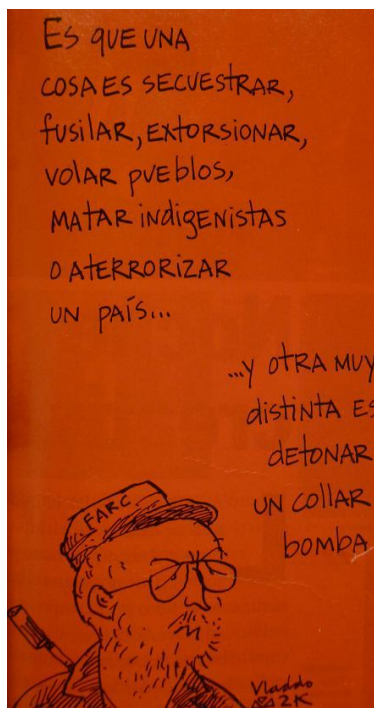 ES QUE UNA
COSA ES SECUESTRAR,
fusilar, EXTORSIONAR,
VOLAR PUEBLOS,
MATAR indigenistas
O ATERRORIZAR
UN PAÍS...
...Y OTRA MUY
distinta ES
detonAR
UN COLLAR
bomba
FARC
Vladdo
2K